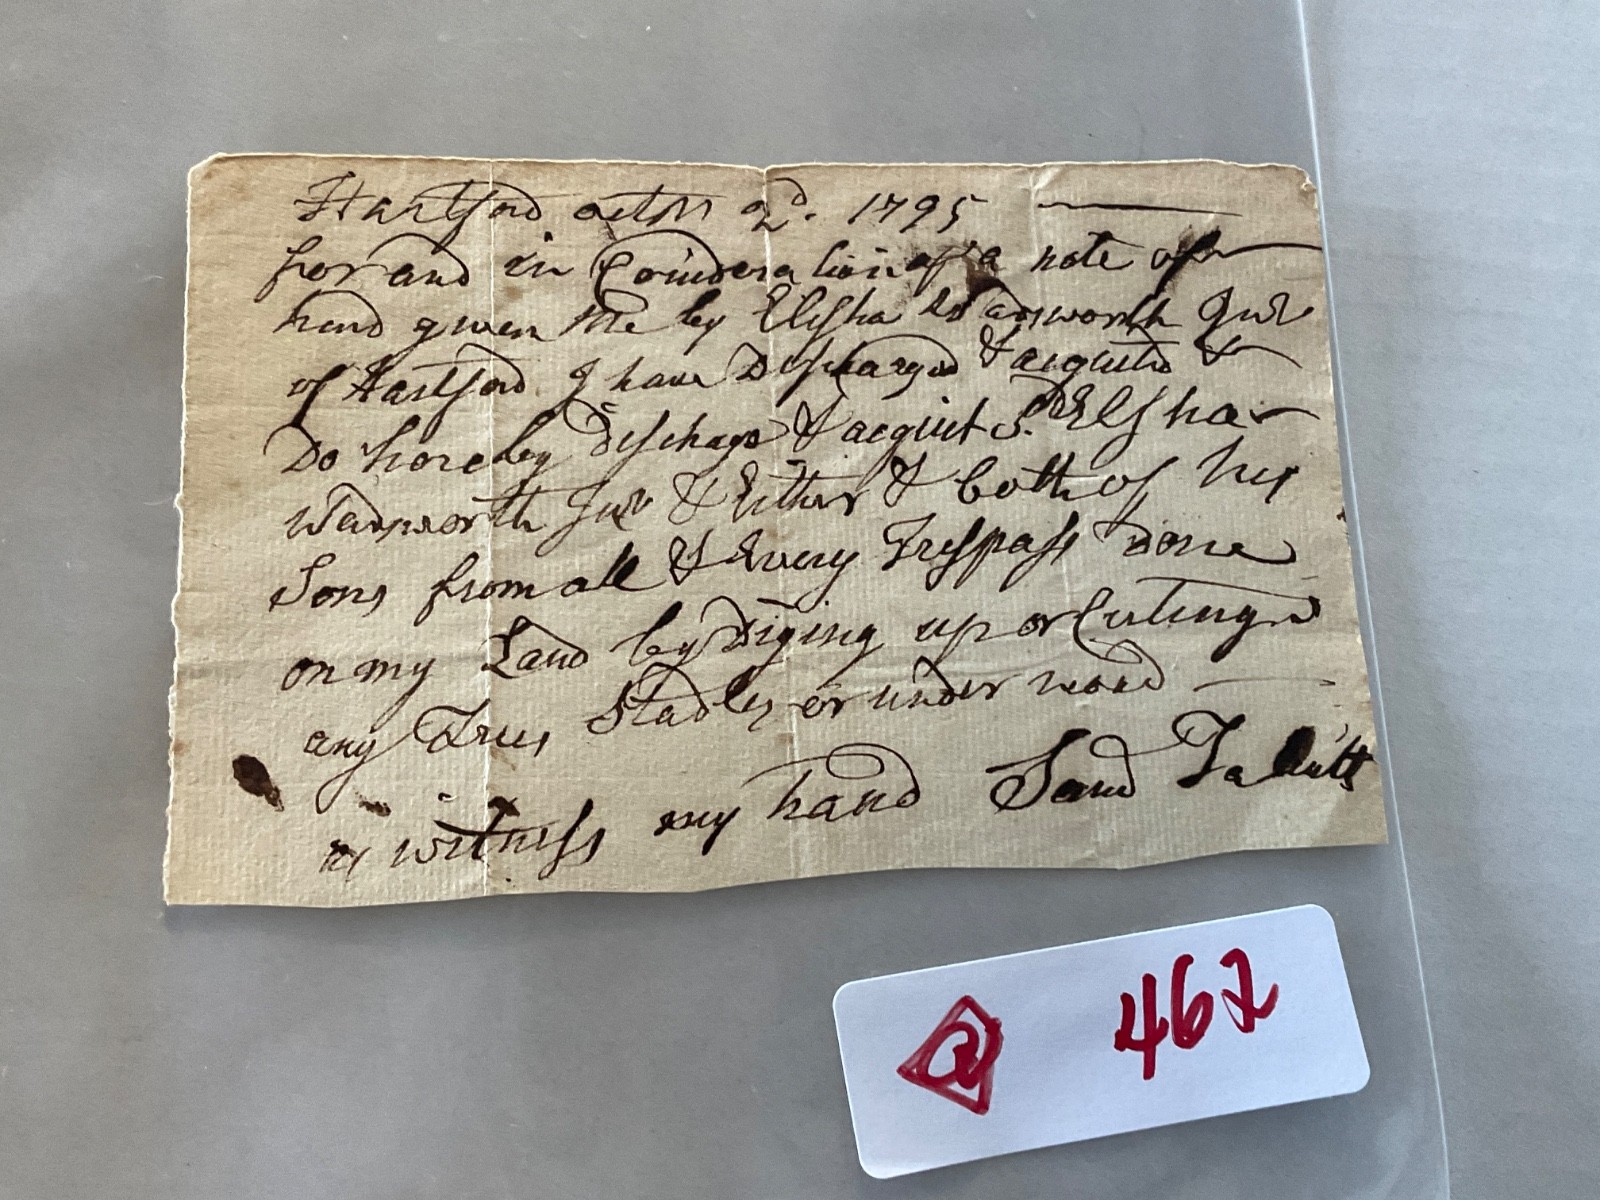 Hartford octor 2d. 1795
for and in Coinderation of a note of
hand given me by Elisha Wadsworth Junr
of Hartford I have Discharged & acquited &
Do hereby discharge & acquit Sd Elisha
Wadsworth Junr & Either & both of his
Sons from all & Every Trespass Done
on my Land by Diging up or Cuting
any Trees Stadles or under wood
as witness my hand Saml Talcott
462